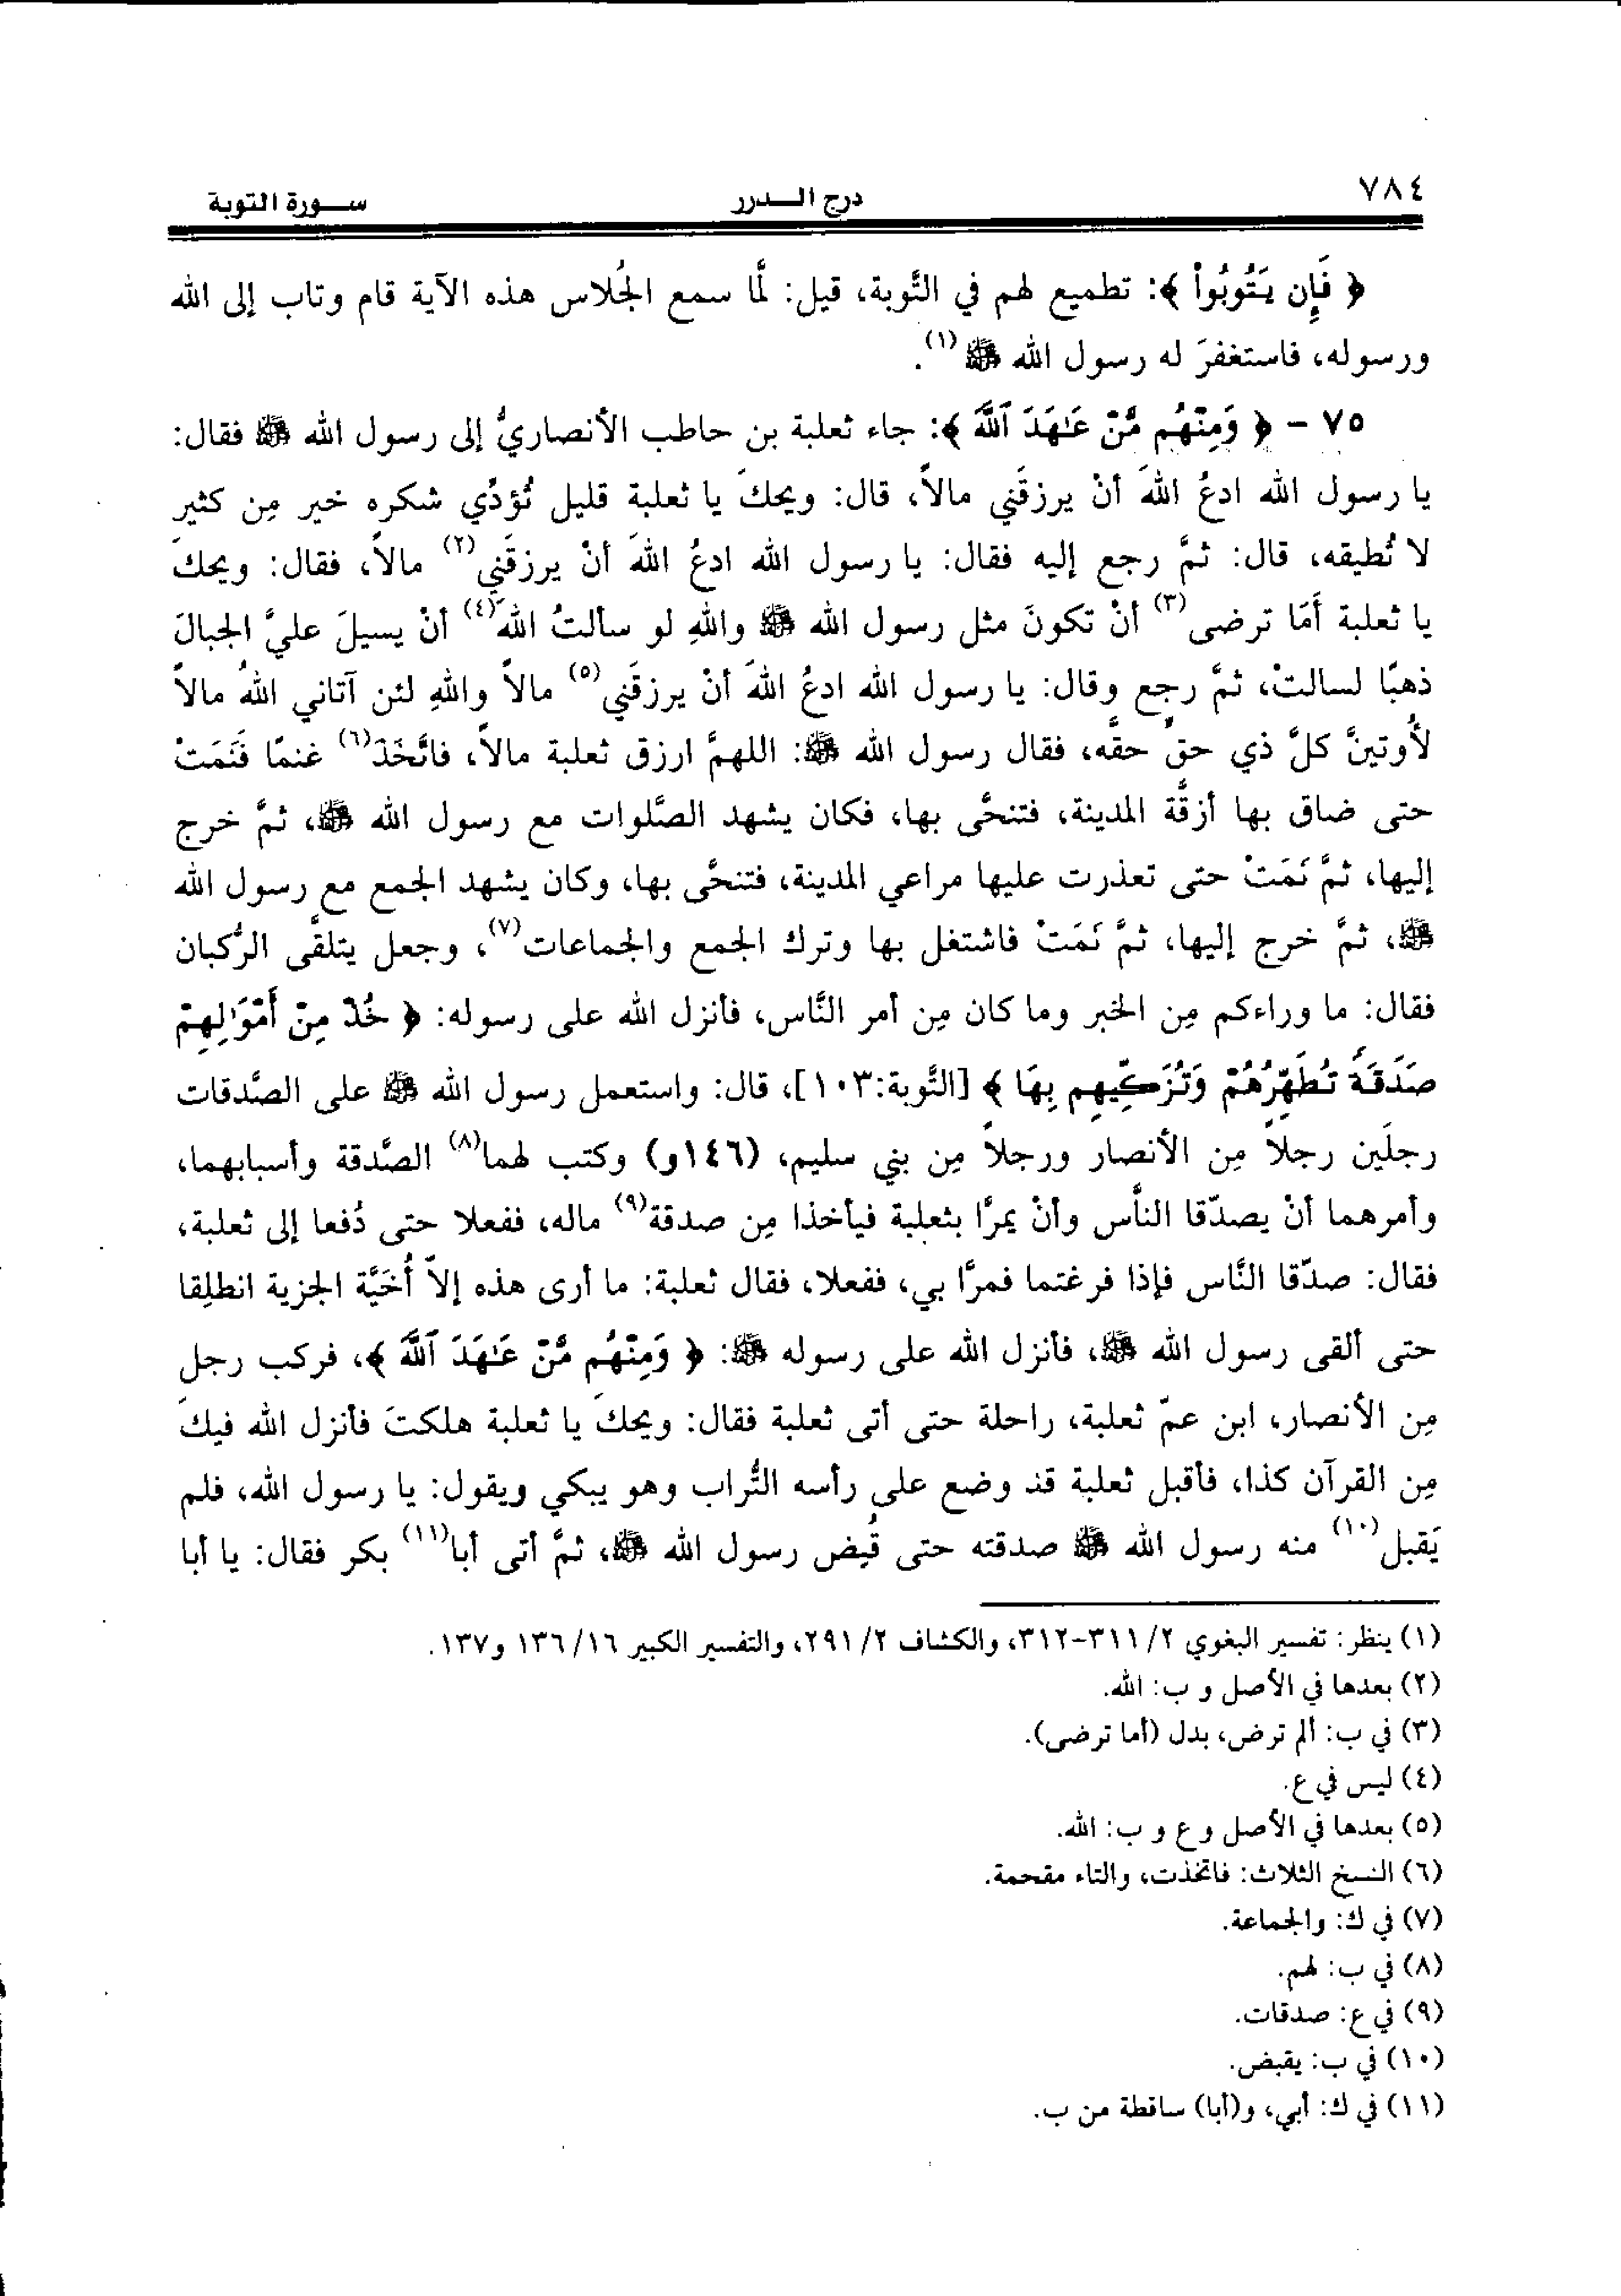 ٧٨٤
درج الـــدرر
ســـورة التوبة
﴿ فَإِن يَتُوبُواْ ﴾: تطميع لهم في التَّوبة، قيل: لمَّا سمع الجُلاس هذه الآية قام وتاب إلى الله
ورسوله، فاستغفرَ له رسول الله ﷺ(١).
٧٥ - ﴿ وَمِنْهُم مَّنْ عَـٰهَدَ ٱللَّهَ ﴾: جاء ثعلبة بن حاطب الأنصاريُّ إلى رسول الله ﷺ فقال:
يا رسول الله ادعُ اللهَ أنْ يرزقَني مالاً، قال: ويحكَ يا ثعلبة قليل تُؤدِّي شكره خير مِن كثير
لا تُطيقه، قال: ثمَّ رجع إليه فقال: يا رسول الله ادعُ اللهَ أنْ يرزقَني(٢) مالاً، فقال: ويحكَ
يا ثعلبة أَمَا ترضى(٣) أنْ تكونَ مثل رسول الله ﷺ واللهِ لو سألتُ اللهَ(٤) أنْ يسيلَ عليَّ الجبالَ
ذهبًا لسالتْ، ثمَّ رجع وقال: يا رسول الله ادعُ اللهَ أنْ يرزقَني(٥) مالاً واللهِ لئن آتاني اللهُ مالاً
لأُوتينَّ كلَّ ذي حقٍّ حقَّه، فقال رسول الله ﷺ: اللهمَّ ارزق ثعلبة مالاً، فاتَّخَذَ(٦) غنمًا فَنَمَتْ
حتى ضاق بها أزقَّة المدينة، فتنحَّى بها، فكان يشهد الصَّلوات مع رسول الله ﷺ، ثمَّ خرج
إليها، ثمَّ نَمَتْ حتى تعذرت عليها مراعي المدينة، فتنحَّى بها، وكان يشهد الجمع مع رسول الله
ﷺ، ثمَّ خرج إليها، ثمَّ نَمَتْ فاشتغل بها وترك الجمع والجماعات(٧)، وجعل يتلقَّى الرُّكبان
فقال: ما وراءكم مِن الخبر وما كان مِن أمر النَّاس، فأنزل الله على رسوله: ﴿ خُذْ مِنْ أَمْوَٰلِهِمْ
صَدَقَةً تُطَهِّرُهُمْ وَتُزَكِّيهِم بِهَا ﴾ [التَّوبة:١٠٣]، قال: واستعمل رسول الله ﷺ على الصَّدقات
رجلَين رجلاً مِن الأنصار ورجلاً مِن بني سليم، (١٤٦و) وكتب لهما(٨) الصَّدقة وأسبابهما،
وأمرهما أنْ يصدّقا النَّاس وأنْ يمرَّا بثعلبة فيأخذا مِن صدقة(٩) ماله، ففعلا حتى دُفعا إلى ثعلبة،
فقال: صدّقا النَّاس فإذا فرغتما فمرَّا بي، ففعلا، فقال ثعلبة: ما أرى هذه إلاّ أُخَيَّة الجزية انطلِقا
حتى ألقى رسول الله ﷺ، فأنزل الله على رسوله ﷺ: ﴿ وَمِنْهُم مَّنْ عَـٰهَدَ ٱللَّهَ ﴾، فركب رجل
مِن الأنصار، ابن عمّ ثعلبة، راحلة حتى أتى ثعلبة فقال: ويحكَ يا ثعلبة هلكتَ فأنزل الله فيكَ
مِن القرآن كذا، فأقبل ثعلبة قد وضع على رأسه التُّراب وهو يبكي ويقول: يا رسول الله، فلم
يَقبل(١٠) منه رسول الله ﷺ صدقته حتى قُبِض رسول الله ﷺ، ثمَّ أتى أبا(١١) بكر فقال: يا أبا
(١) ينظر: تفسير البغوي ٢/ ٣١١-٣١٢، والكشاف ٢/ ٢٩١، والتفسير الكبير ١٦/ ١٣٦ و١٣٧.
(٢) بعدها في الأصل و ب: الله.
(٣) في ب: ألم ترض، بدل (أما ترضى).
(٤) ليس في ع.
(٥) بعدها في الأصل و ع و ب: الله.
(٦) النسخ الثلاث: فاتخذت، والتاء مقحمة.
(٧) في ك: والجماعة.
(٨) في ب: لهم.
(٩) في ع: صدقات.
(١٠) في ب: يقبض.
(١١) في ك: أبي، و(أبا) ساقطة من ب.